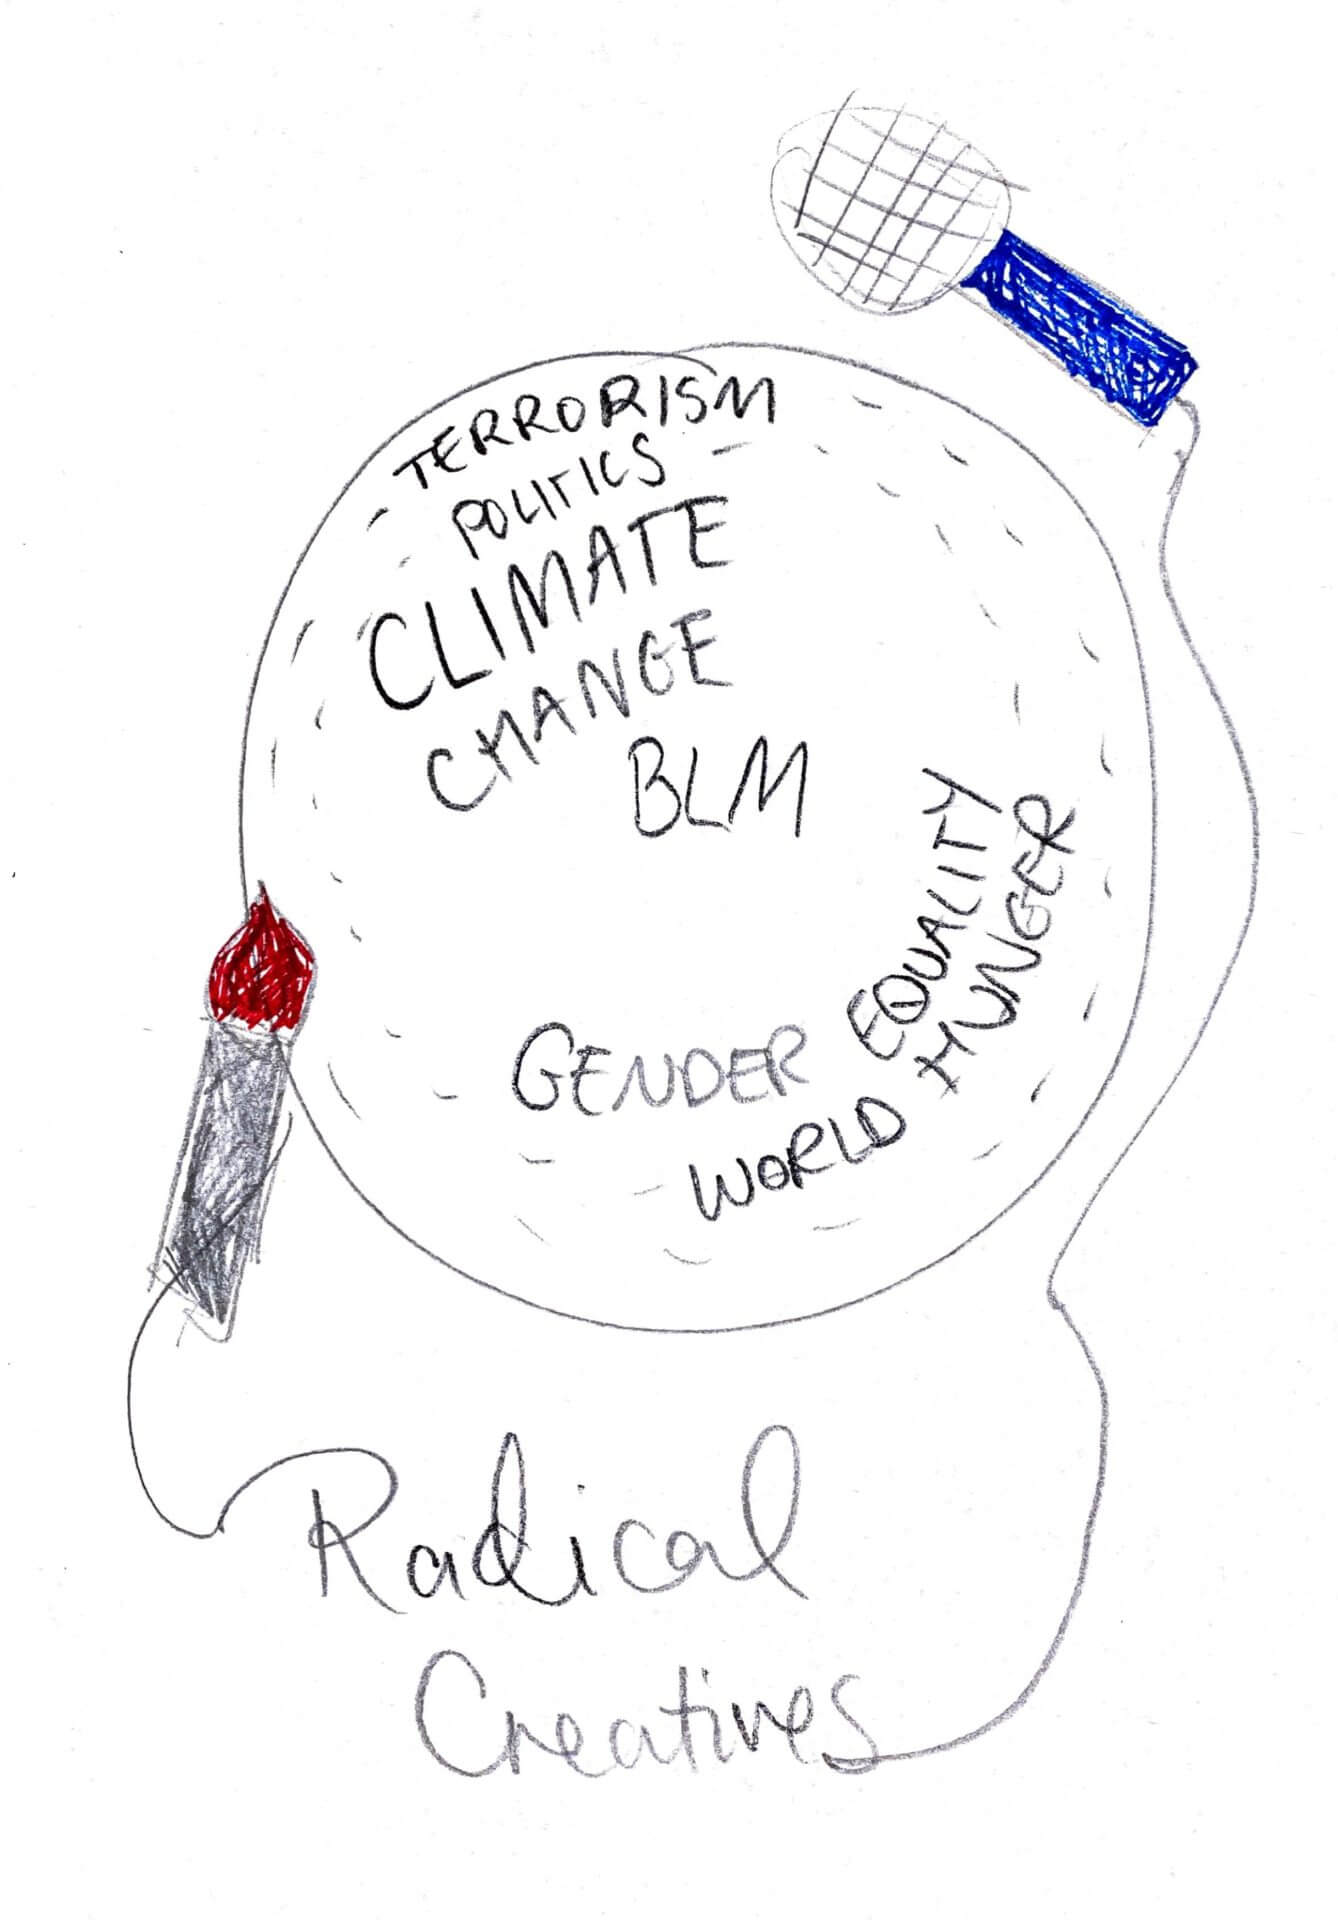 TERRORISM
POLITICS
CLIMATE
CHANGE
BLM
GENDER EQUALITY
WORLD HUNGER
Radical
Creatives